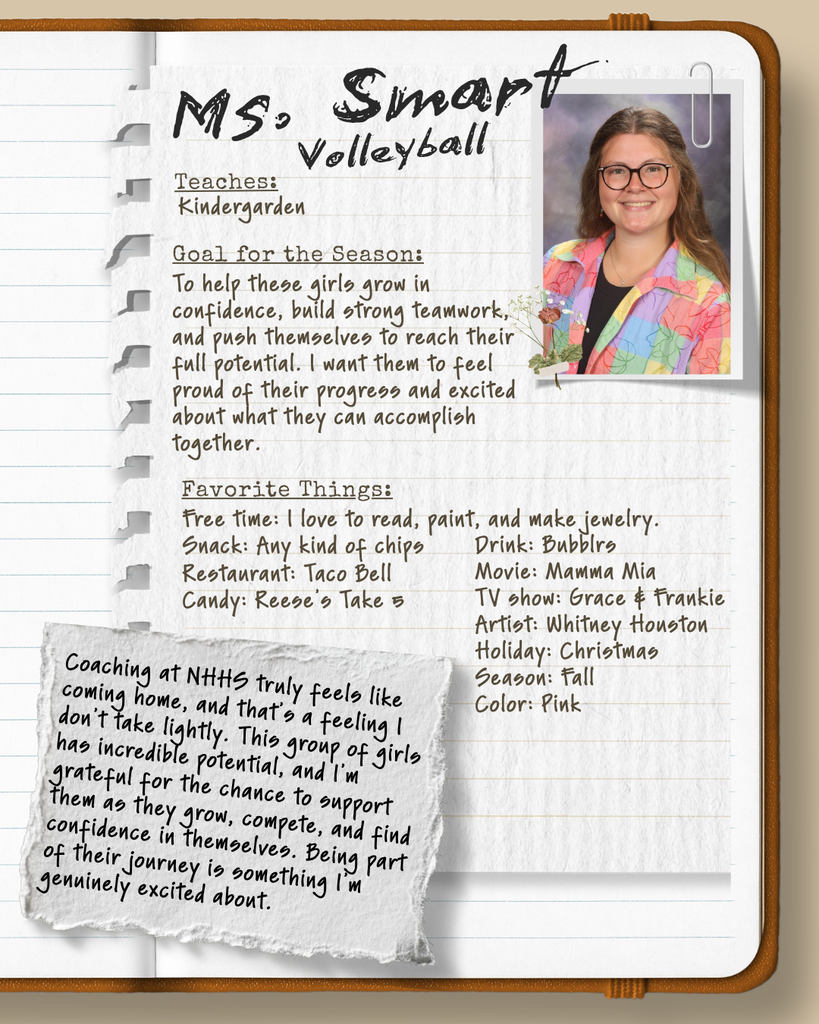 Ms. Smart
Volleyball
Teaches:
Kindergarden
Goal for the Season:
To help these girls grow in
confidence, build strong teamwork,
and push themselves to reach their
full potential. I want them to feel
proud of their progress and excited
about what they can accomplish
together.
Favorite Things:
Free time: I love to read, paint, and make jewelry.
Snack: Any kind of chips
Restaurant: Taco Bell
Candy: Reese's Take 5
Drink: Bubblrs
Movie: Mamma Mia
TV show: Grace & Frankie
Artist: Whitney Houston
Holiday: Christmas
Season: Fall
Color: Pink
Coaching at NHHS truly feels like
coming home, and that's a feeling I
don't take lightly. This group of girls
has incredible potential, and I'm
grateful for the chance to support
them as they grow, compete, and find
confidence in themselves. Being part
of their journey is something I'm
genuinely excited about.